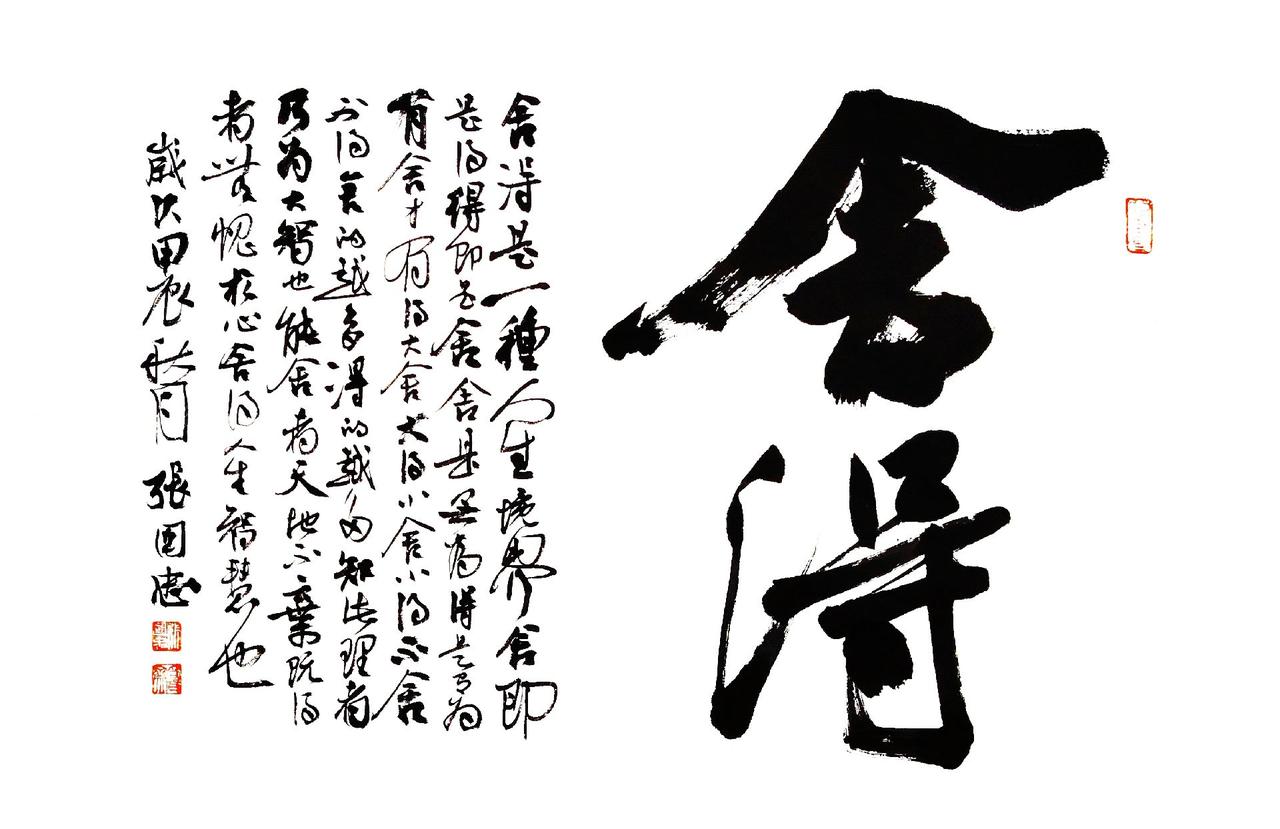 舍得
舍得是一種人生境界舍即
是得得即是舍舍是無為得是有為
有舍才有得大舍大得小舍小得不舍
不得舍的越多得的越多知此理者
乃為大智也能舍者天地不棄既得
者無愧於心舍得人生智慧也
歲次甲辰秋月張國忠